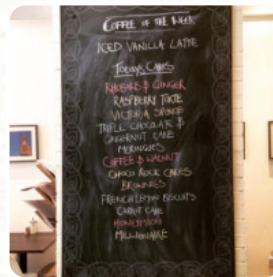 COFFEE OF THE WEEK
ICED VANILLA LATTE
TODAYS CAKES
RHUBARB & GINGER
RASPBERRY TORTE
VICTORIA SPONGE
TRIPLE CHOCOLATE &
CAKE
MERINGUES
COFFEE & WALNUT
CHOCO ROCK CAKES
BROWNIES
FRENCH LEMON BISCUITS
CARROT CAKE
MILLIONAIRE